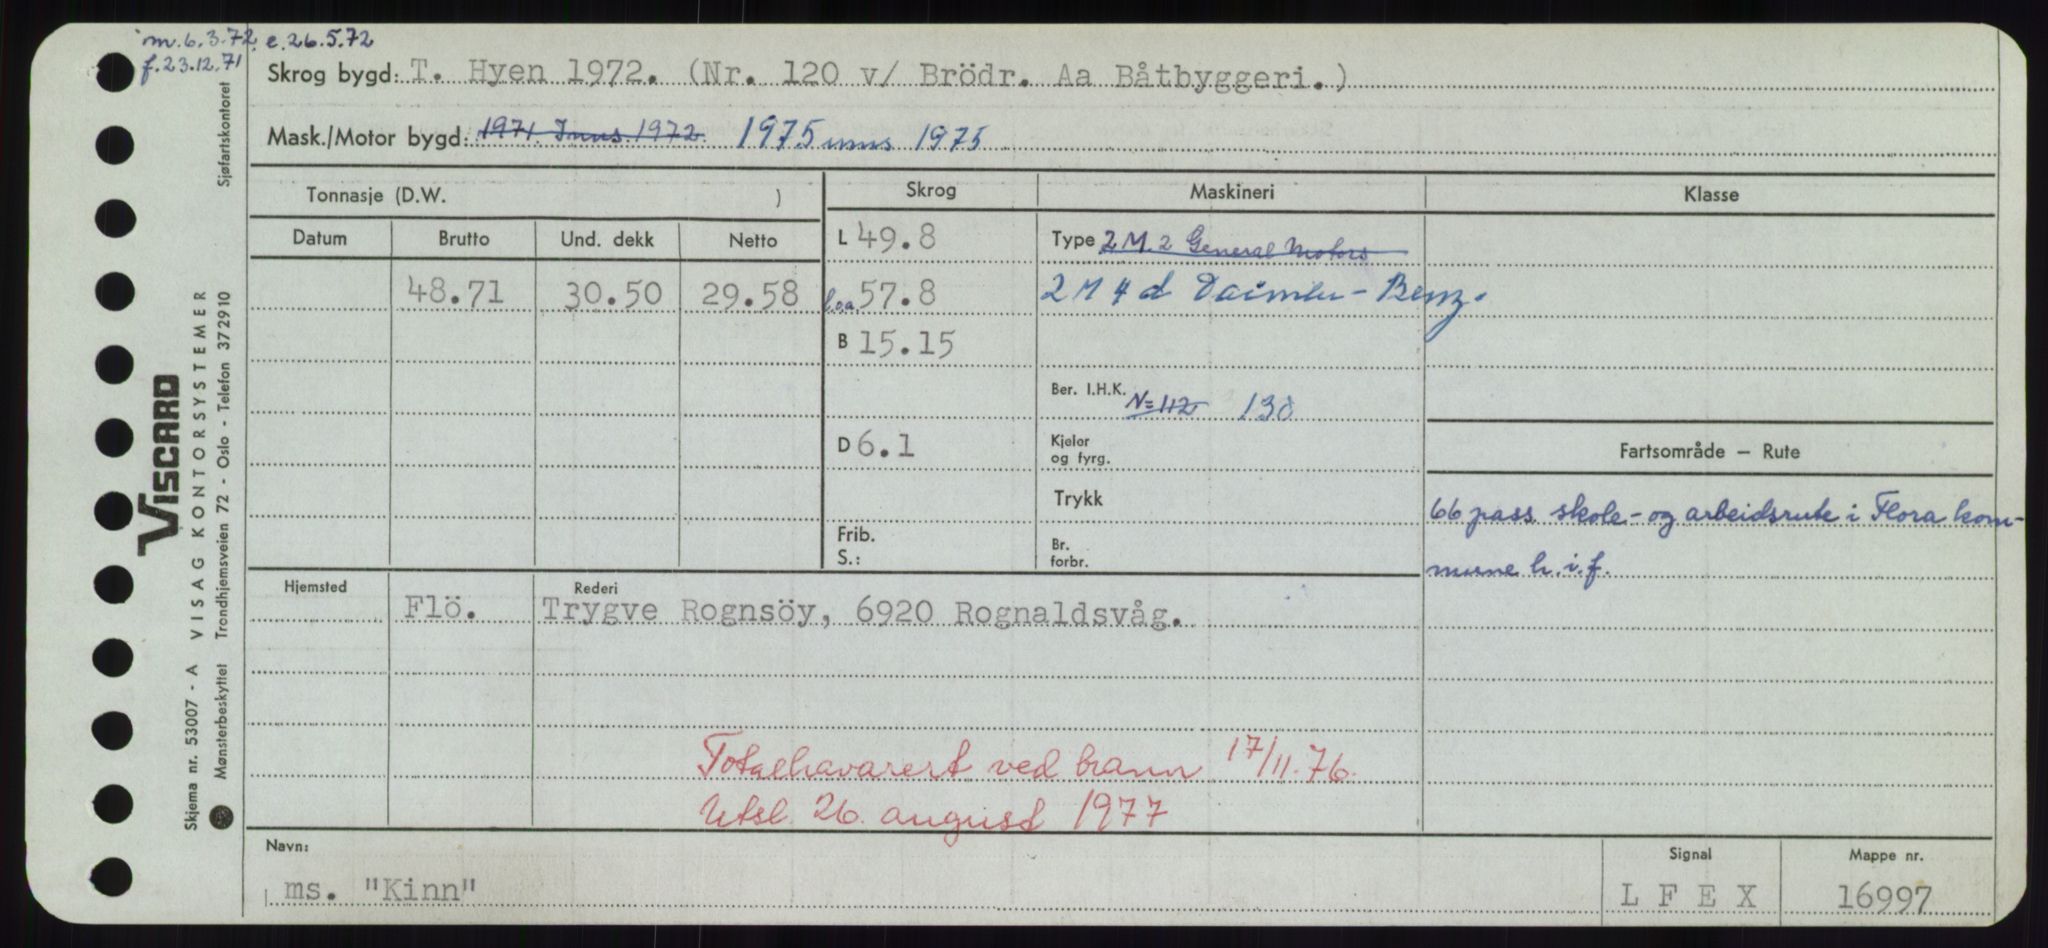 m. 6.3.72 e. 26.5.72
f. 23.12.71
Skrog bygd: T. Hyen 1972. (Nr. 120 v/ Brödr. Aa Båtbyggeri.)
Mask./Motor bygd: 1971. Inns. 1972. 1975 inns 1975
Tonnasje (D.W. )
Skrog
Maskineri
Klasse
Datum
Brutto
Und. dekk
Netto
L 49.8
Type 2 M. 2 General Motors
48.71
30.50
29.58
l.o.a. 57.8
2 M 4 d Daimler-Benz.
B 15.15
Ber. I.H.K. N=112 130
D 6.1
Kjeler og fyrg.
Fartsområde — Rute
Trykk
66 pass skole- og arbeidsrute i Flora kom-
Frib. S.:
Br. forbr.
mune h.i.f.
Hjemsted
Rederi
Flö.
Trygve Rognsöy, 6920 Rognaldsvåg.
Totalhavarert ved brann 17/11.76.
Utsl. 26. august 1977
Navn:
Signal
Mappe nr.
ms. "Kinn"
L F E X
16997
VISCARD
Skjema nr. 53007 - A VISAG KONTORSYSTEMER
Mønsterbeskyttet Trondhjemsveien 72 - Oslo - Telefon 372910
Sjøfartskontoret